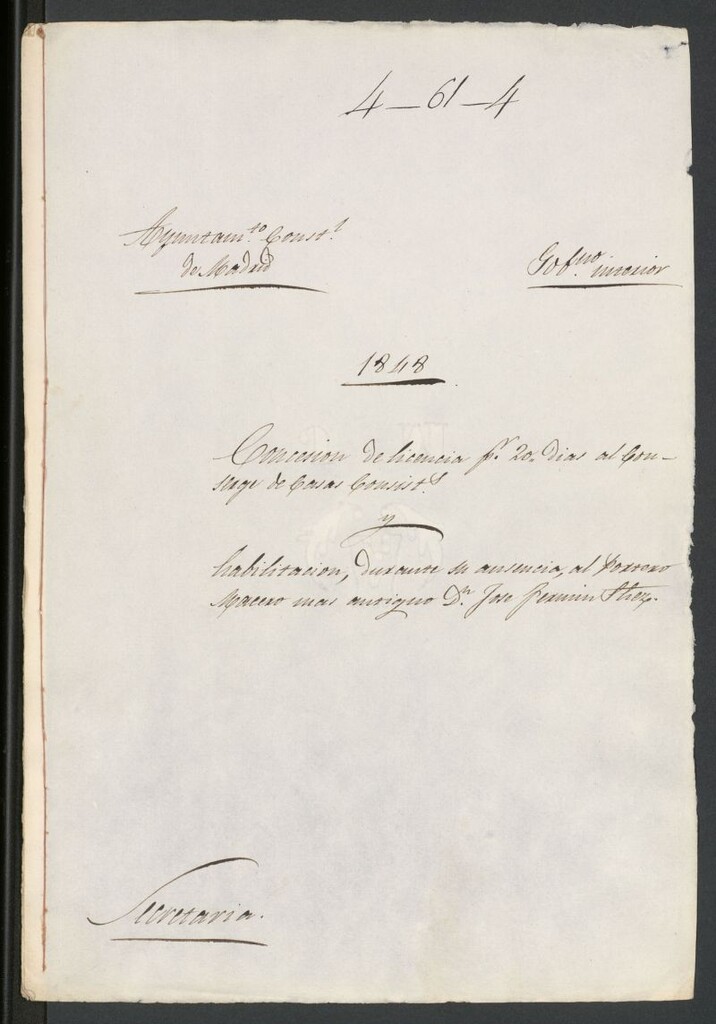 4-61-4
Ayuntam.to Const.l
de Madrid
Gob.no interior
1848
Concesion de licencia p.r 20. dias al Con-
serge de Casas Consist.s
y
habilitacion, durante su ausencia, al Portero
Macero mas antiguo D.n Jose Fermin Shez.
Secretaria.